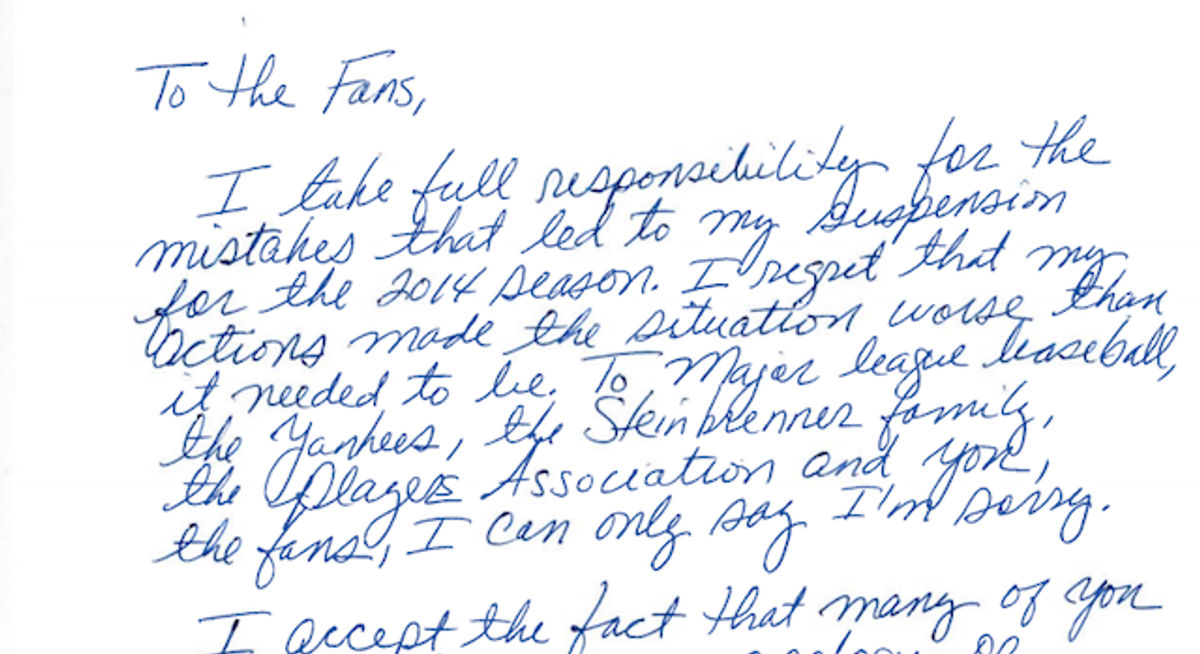 To the Fans,
I take full responsibility for the
mistakes that led to my suspension
for the 2014 season. I regret that my
actions made the situation worse than
it needed to be. To Major league baseball,
the Yankees, the Steinbrenner family,
the Players Association and you,
the fans, I can only say I'm sorry.
I accept the fact that many of you